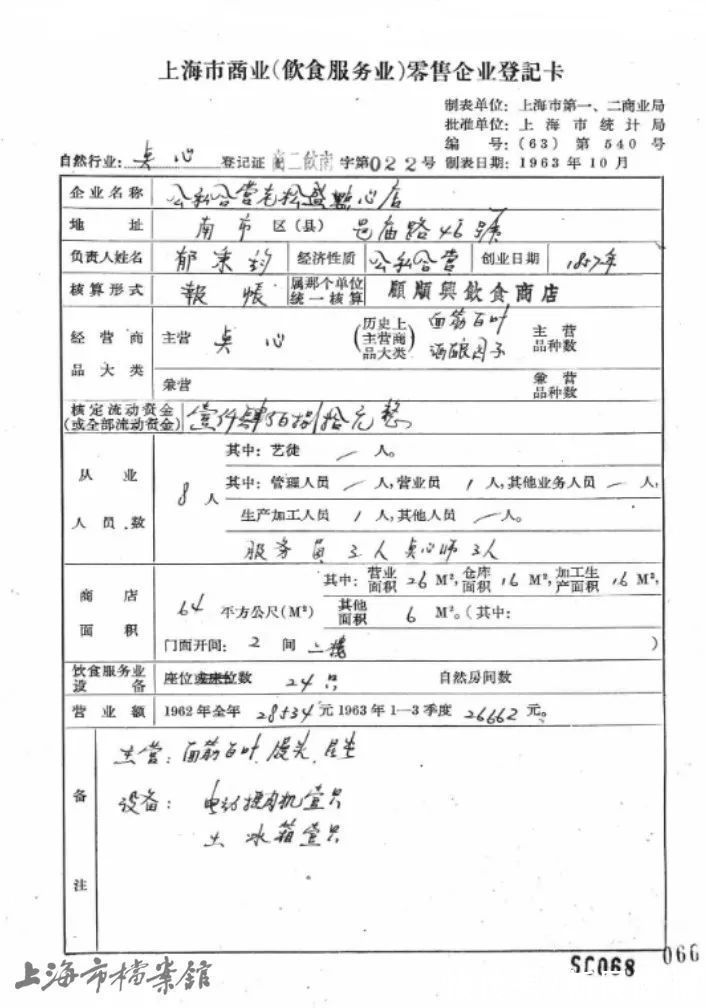 上海市商业(飲食服务业)零售企业登記卡
制表单位: 上海市第一、二商业局
批准单位: 上海市统计局
编号: (63) 第540号
自然行业: 点心 登记证 商二飲南 字第022号 制表日期: 1963年10月
企业名称 公私合营老松盛點心店
地址 南市区(县) 邑庙路46號
负责人姓名 郁秉钧 经济性质 公私合营 创业日期 1857年
核算形式 報帳 属那个单位统一核算 顧順興飲食商店
经营商品大类 主营 点心 (历史上主营商品大类) 面筋百叶 酒酿园子 主营品种数
兼营 兼营品种数
核定流动资金(或全部流动资金) 壹仟肆佰捌拾元整
从业人员数 8人 其中: 艺徒 / 人。
其中: 管理人员 / 人, 营业员 1 人, 其他业务人员 / 人,
生产加工人员 1 人, 其他人员 / 人。
服务员 3人 点心师 3人
商店面积 64 平方公尺(M²) 其中: 营业面积 26 M², 仓库面积 16 M², 加工生产面积 16 M²,
其他面积 6 M²。(其中:
门面开间: 2 间 二楼 )
飲食服务业设备 座位或床位数 24只 自然房间数
营业额 1962年全年 28534元 1963年1—3季度 26662元。
备注
主营: 面筋百叶、馒头、
设备: 电动 机壹只
土冰箱壹只
上海市檔案館
SC068
066